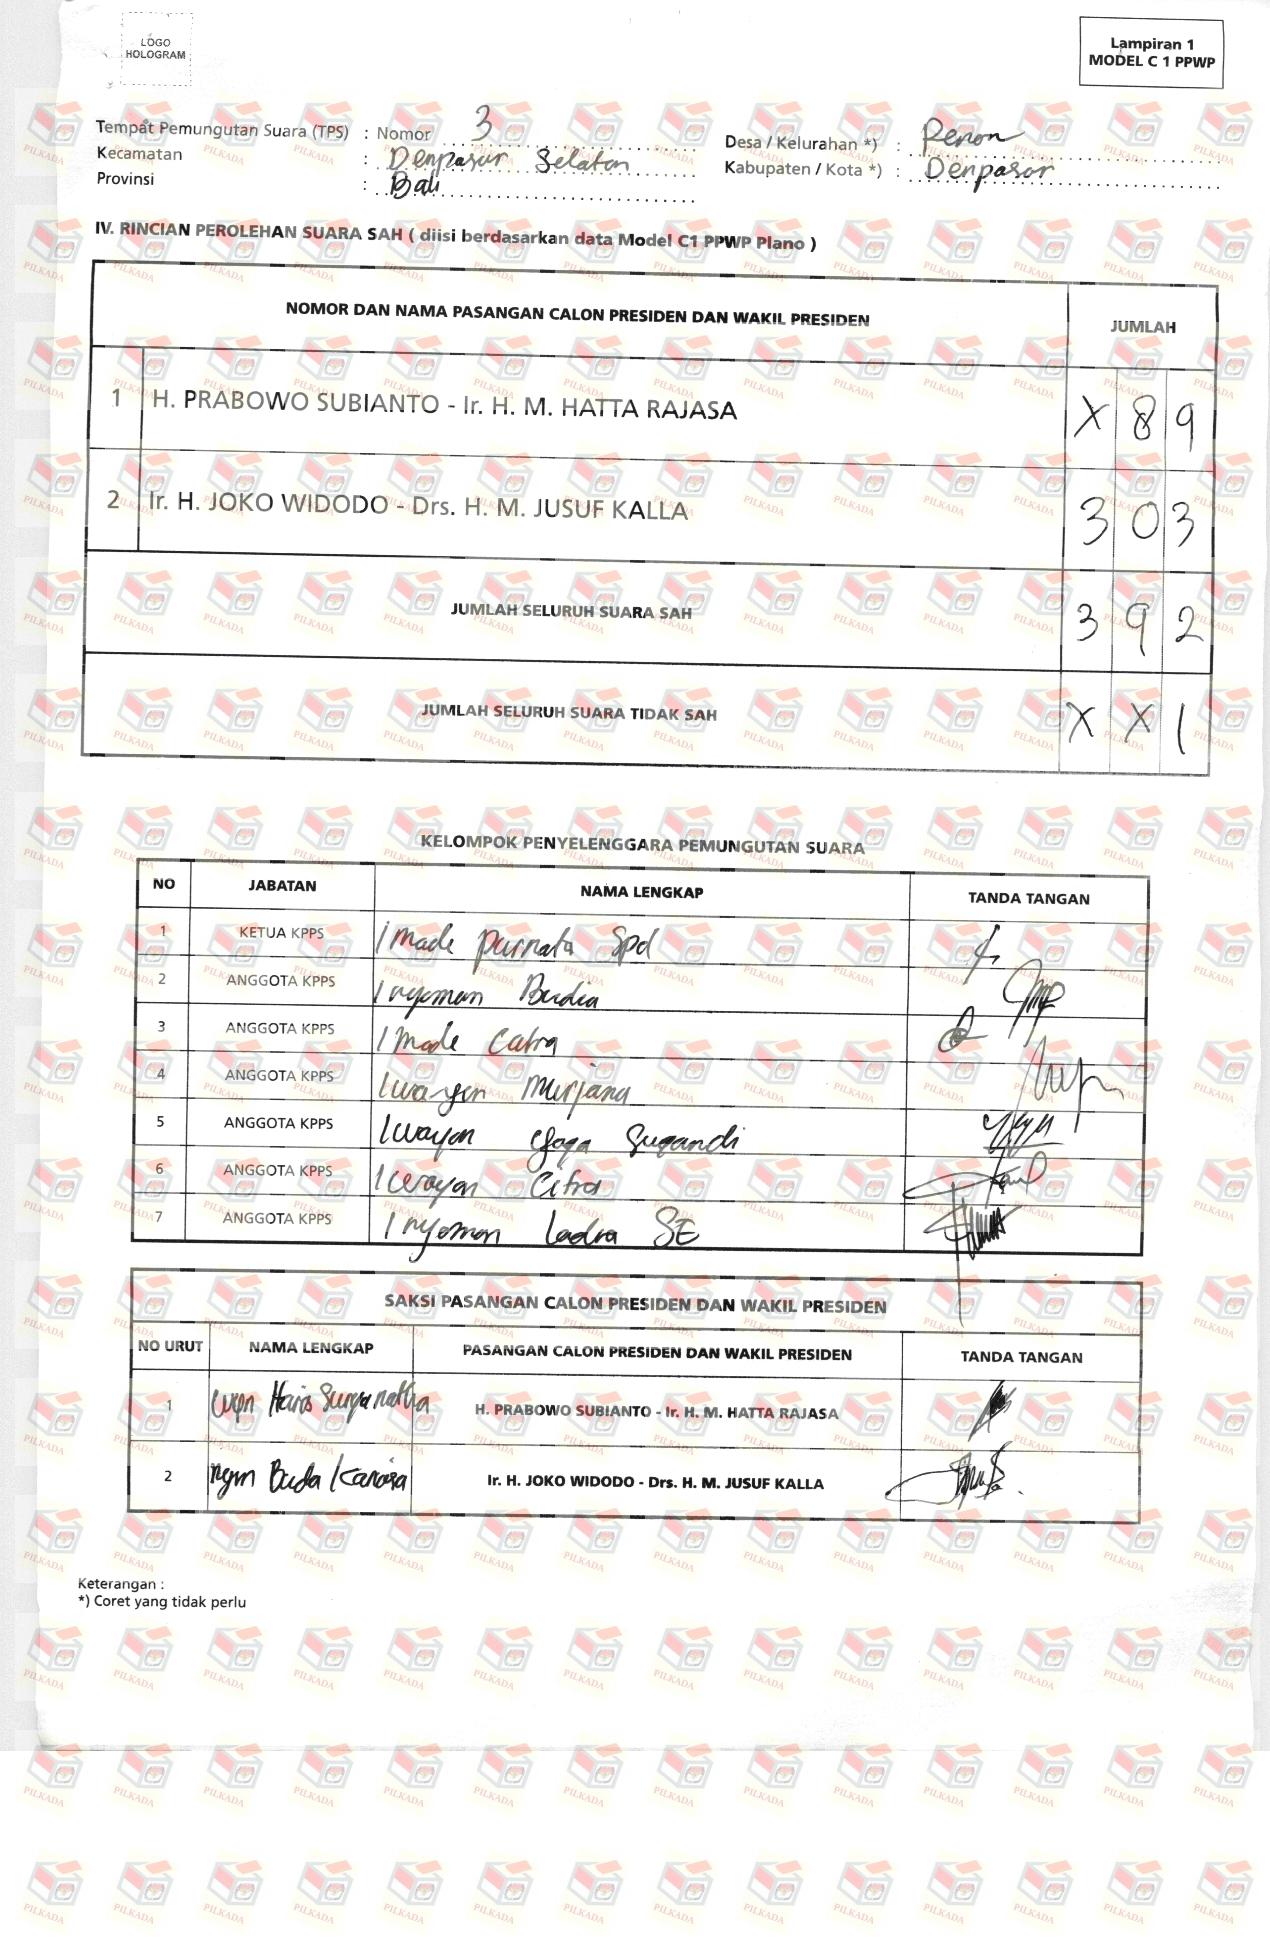 LOGO
HOLOGRAM
Lampiran 1
MODEL C 1 PPWP
Tempat Pemungutan Suara (TPS) : Nomor 3
Desa / Kelurahan *) : Renon
Kecamatan : Denpasar Selatan
Kabupaten / Kota *) : Denpasar
Provinsi : Bali
IV. RINCIAN PEROLEHAN SUARA SAH ( diisi berdasarkan data Model C1 PPWP Plano )
NOMOR DAN NAMA PASANGAN CALON PRESIDEN DAN WAKIL PRESIDEN JUMLAH
1 H. PRABOWO SUBIANTO - Ir. H. M. HATTA RAJASA X 8 9
2 Ir. H. JOKO WIDODO - Drs. H. M. JUSUF KALLA 3 0 3
JUMLAH SELURUH SUARA SAH 3 9 2
JUMLAH SELURUH SUARA TIDAK SAH X X 1
KELOMPOK PENYELENGGARA PEMUNGUTAN SUARA
NO JABATAN NAMA LENGKAP TANDA TANGAN
1 KETUA KPPS I Made Purnata Spd
2 ANGGOTA KPPS I nyoman Budia
3 ANGGOTA KPPS I Made Catra
4 ANGGOTA KPPS I wayan Murjana
5 ANGGOTA KPPS I wayan Yoga Sugandi
6 ANGGOTA KPPS I wayan Citra
7 ANGGOTA KPPS I nyoman Ladra SE
SAKSI PASANGAN CALON PRESIDEN DAN WAKIL PRESIDEN
NO URUT NAMA LENGKAP PASANGAN CALON PRESIDEN DAN WAKIL PRESIDEN TANDA TANGAN
1 Haris Suryanatha H. PRABOWO SUBIANTO - Ir. H. M. HATTA RAJASA
2 Ngm Buda Ir. H. JOKO WIDODO - Drs. H. M. JUSUF KALLA
Keterangan :
*) Coret yang tidak perlu
PILKADA